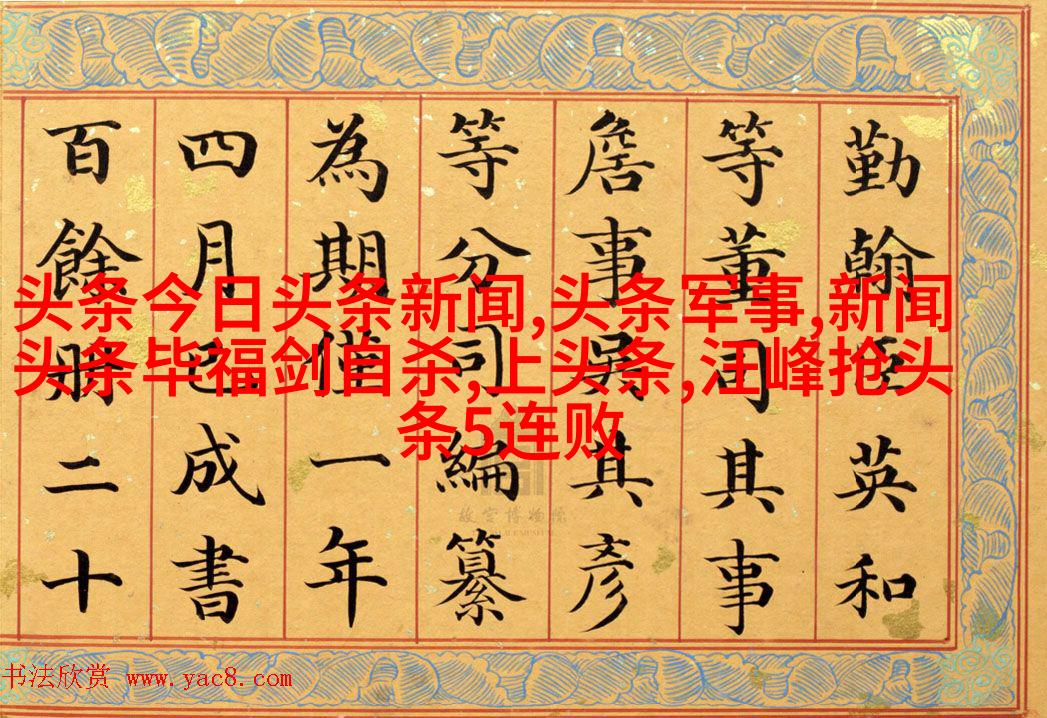 勤翰臣英和
等董司其事
詹事吳其彥
等分司編纂
為期僅一年
四月已成書
百餘冊二十
头条今日头条新闻,头条军事,新闻
头条毕福剑自杀,上头条,汪峰抢头
条5连败
故宫博物院
书法欣赏 www.yac8.com